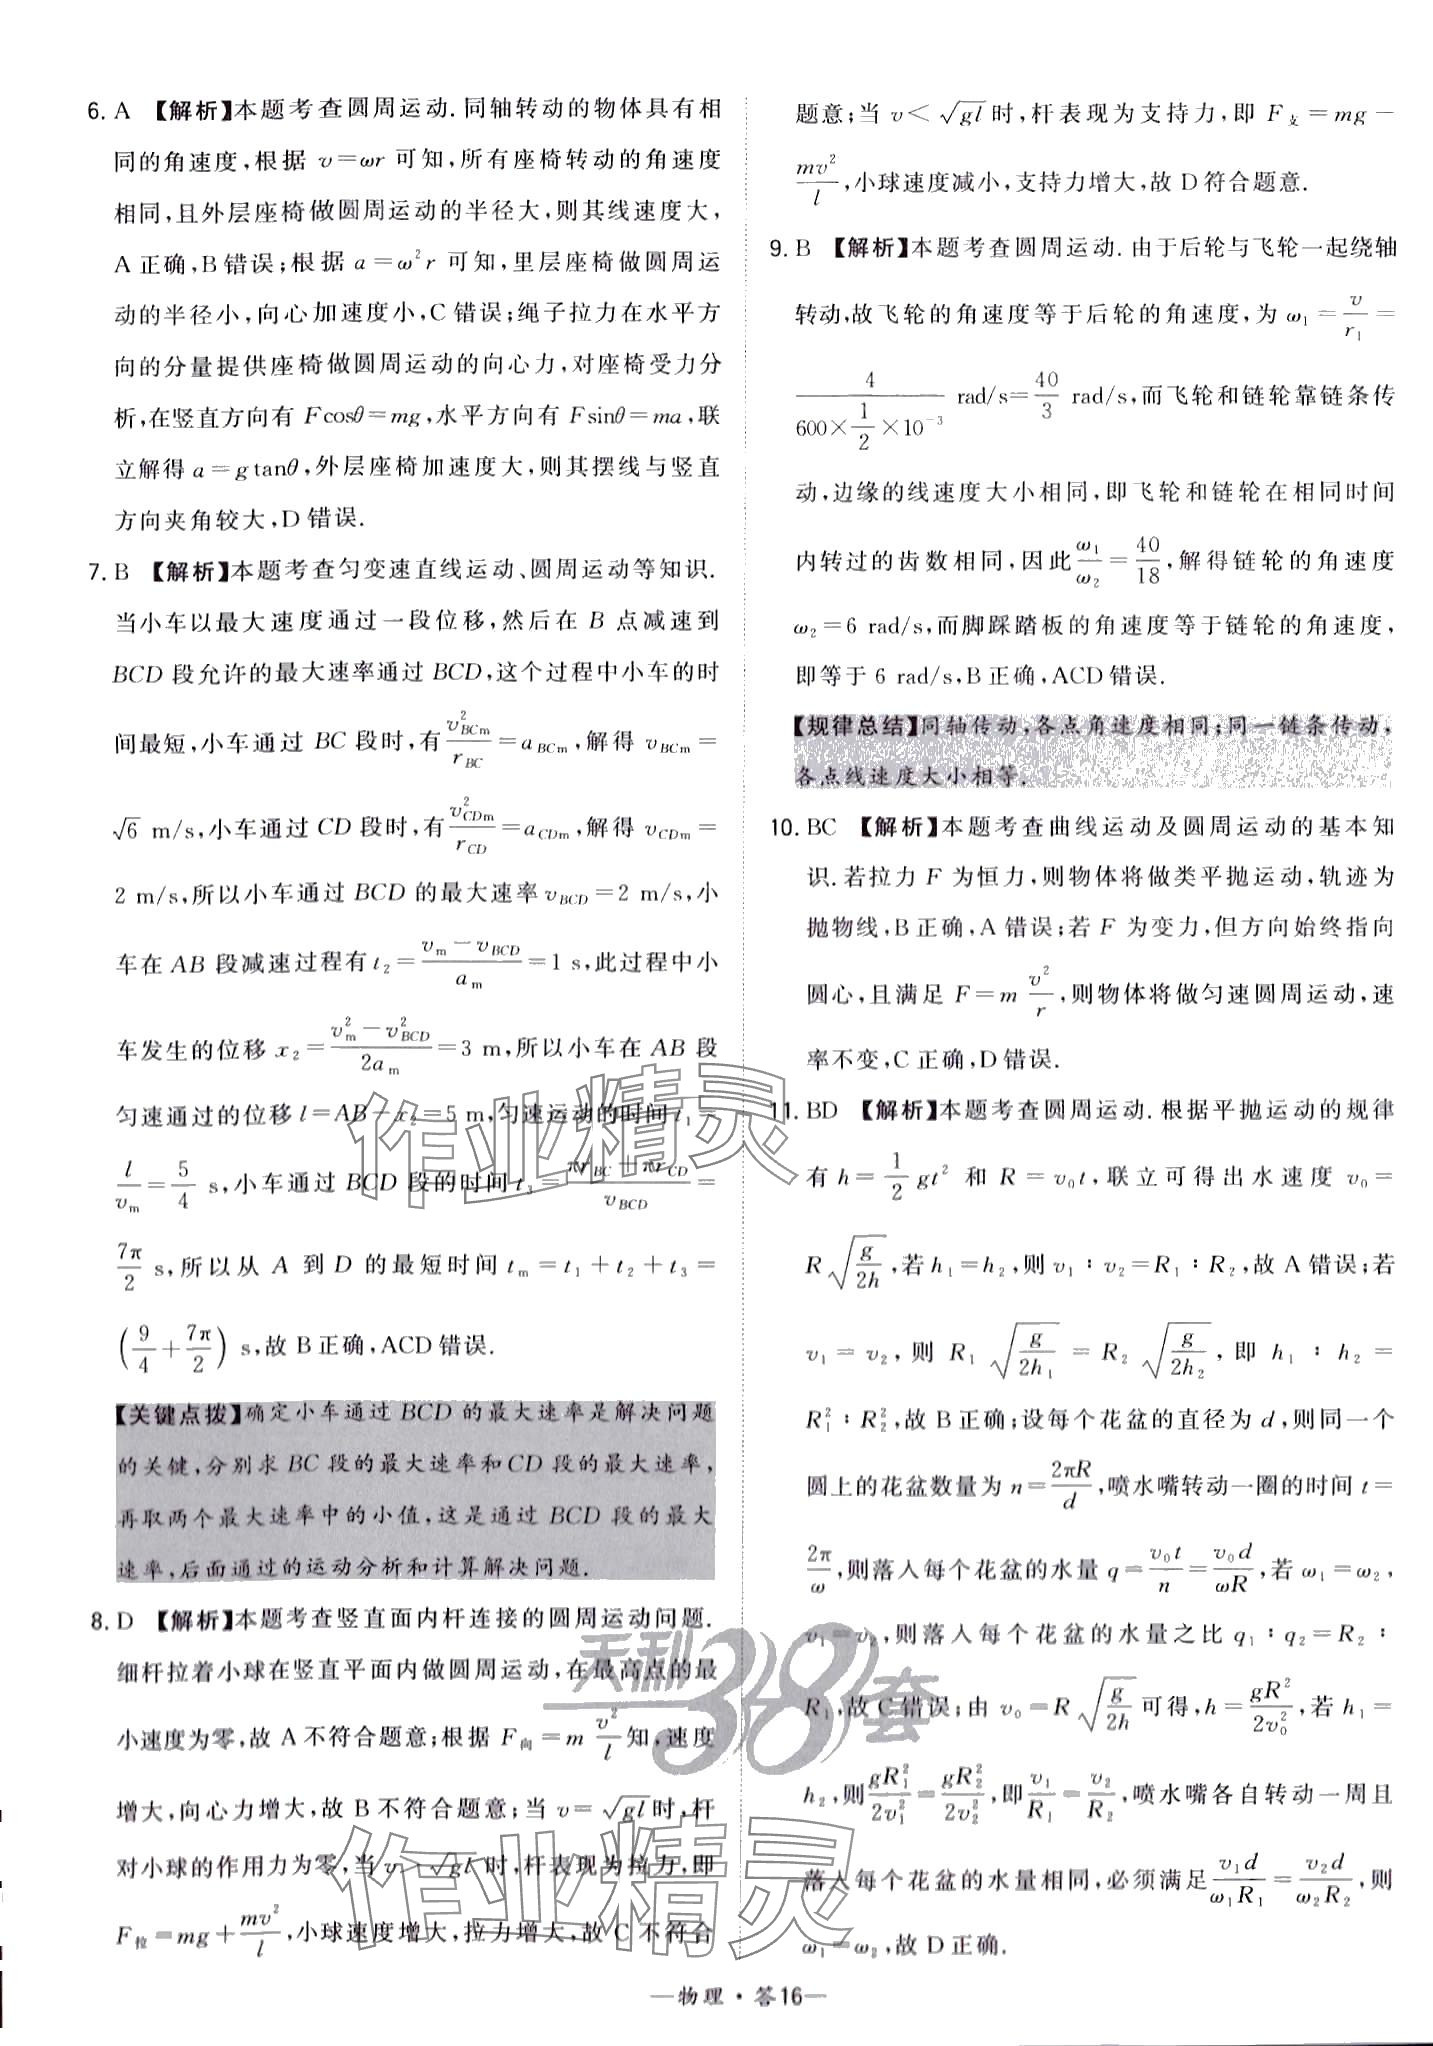 6. A 【解析】本题考查圆周运动. 同轴转动的物体具有相
同的角速度,根据 v=ωr 可知,所有座椅转动的角速度
相同,且外层座椅做圆周运动的半径大,则其线速度大,
A 正确,B 错误;根据 a=ω²r 可知,里层座椅做圆周运
动的半径小,向心加速度小,C 错误;绳子拉力在水平方
向的分量提供座椅做圆周运动的向心力,对座椅受力分
析,在竖直方向有 Fcosθ=mg,水平方向有 Fsinθ=ma,联
立解得 a=gtanθ,外层座椅加速度大,则其摆线与竖直
方向夹角较大,D 错误.
7. B 【解析】本题考查匀变速直线运动、圆周运动等知识.
当小车以最大速度通过一段位移,然后在 B 点减速到
BCD 段允许的最大速率通过 BCD,这个过程中小车的时
间最短,小车通过 BC 段时,有 v²_BCm/r_BC=a_BCm,解得 v_BCm=
√6 m/s,小车通过 CD 段时,有 v²_CDm/r_CD=a_CDm,解得 v_CDm=
2 m/s,所以小车通过 BCD 的最大速率 v_BCD=2 m/s,小
车在 AB 段减速过程有 t₂=(v_m-v_BCD)/a_m=1 s,此过程中小
车发生的位移 x₂=(v²_m-v²_BCD)/2a_m=3 m,所以小车在 AB 段
匀速通过的位移 l=AB-x₂=5 m,匀速运动的时间 t₁=
l/v_m=5/4 s,小车通过 BCD 段的时间 t₃=(πr_BC+πr_CD)/v_BCD=
7π/2 s,所以从 A 到 D 的最短时间 t_m=t₁+t₂+t₃=
(9/4+7π/2) s,故 B 正确,ACD 错误.
【关键点拨】确定小车通过 BCD 的最大速率是解决问题
的关键,分别求 BC 段的最大速率和 CD 段的最大速率,
再取两个最大速率中的小值,这是通过 BCD 段的最大
速率,后面通过的运动分析和计算解决问题.
8. D 【解析】本题考查竖直面内杆连接的圆周运动问题.
细杆拉着小球在竖直平面内做圆周运动,在最高点的最
小速度为零,故 A 不符合题意;根据 F向=m v²/l 知,速度
增大,向心力增大,故 B 不符合题意;当 v=√gl 时,杆
对小球的作用力为零,当 v>√gl 时,杆表现为拉力,即
F拉=mg+mv²/l,小球速度增大,拉力增大,故 C 不符合
题意;当 v<√gl 时,杆表现为支持力,即 F支=mg-
mv²/l,小球速度减小,支持力增大,故 D 符合题意.
9. B 【解析】本题考查圆周运动. 由于后轮与飞轮一起绕轴
转动,故飞轮的角速度等于后轮的角速度,为 ω₁=v/r₁=
4/(600×1/2×10⁻³) rad/s=40/3 rad/s,而飞轮和链轮靠链条传
动,边缘的线速度大小相同,即飞轮和链轮在相同时间
内转过的齿数相同,因此 ω₁/ω₂=40/18,解得链轮的角速度
ω₂=6 rad/s,而脚踩踏板的角速度等于链轮的角速度,
即等于 6 rad/s,B 正确,ACD 错误.
【规律总结】同轴传动,各点角速度相同;同一链条传动,
各点线速度大小相等.
10. BC 【解析】本题考查曲线运动及圆周运动的基本知
识. 若拉力 F 为恒力,则物体将做类平抛运动,轨迹为
抛物线,B 正确,A 错误;若 F 为变力,但方向始终指向
圆心,且满足 F=m v²/r,则物体将做匀速圆周运动,速
率不变,C 正确,D 错误.
11. BD 【解析】本题考查圆周运动. 根据平抛运动的规律
有 h=1/2 gt² 和 R=v₀t,联立可得出水速度 v₀=
R√(g/2h),若 h₁=h₂,则 v₁∶v₂=R₁∶R₂,故 A 错误;若
v₁=v₂,则 R₁√(g/2h₁)=R₂√(g/2h₂),即 h₁∶h₂=
R₁²∶R₂²,故 B 正确;设每个花盆的直径为 d,则同一个
圆上的花盆数量为 n=2πR/d,喷水嘴转动一圈的时间 t=
2π/ω,则落入每个花盆的水量 q=v₀t/n=v₀d/ωR,若 ω₁=ω₂,
v₁=v₂,则落入每个花盆的水量之比 q₁∶q₂=R₂∶
R₁,故 C 错误;由 v₀=R√(g/2h) 可得,h=gR²/2v₀²,若 h₁=
h₂,则 gR₁²/2v₁²=gR₂²/2v₂²,即 v₁/R₁=v₂/R₂,喷水嘴各自转动一周且
落入每个花盆的水量相同,必须满足 v₁d/ω₁R₁=v₂d/ω₂R₂,则
ω₁=ω₂,故 D 正确.
作业精灵
天利38套
作业精灵
—物理·答16—